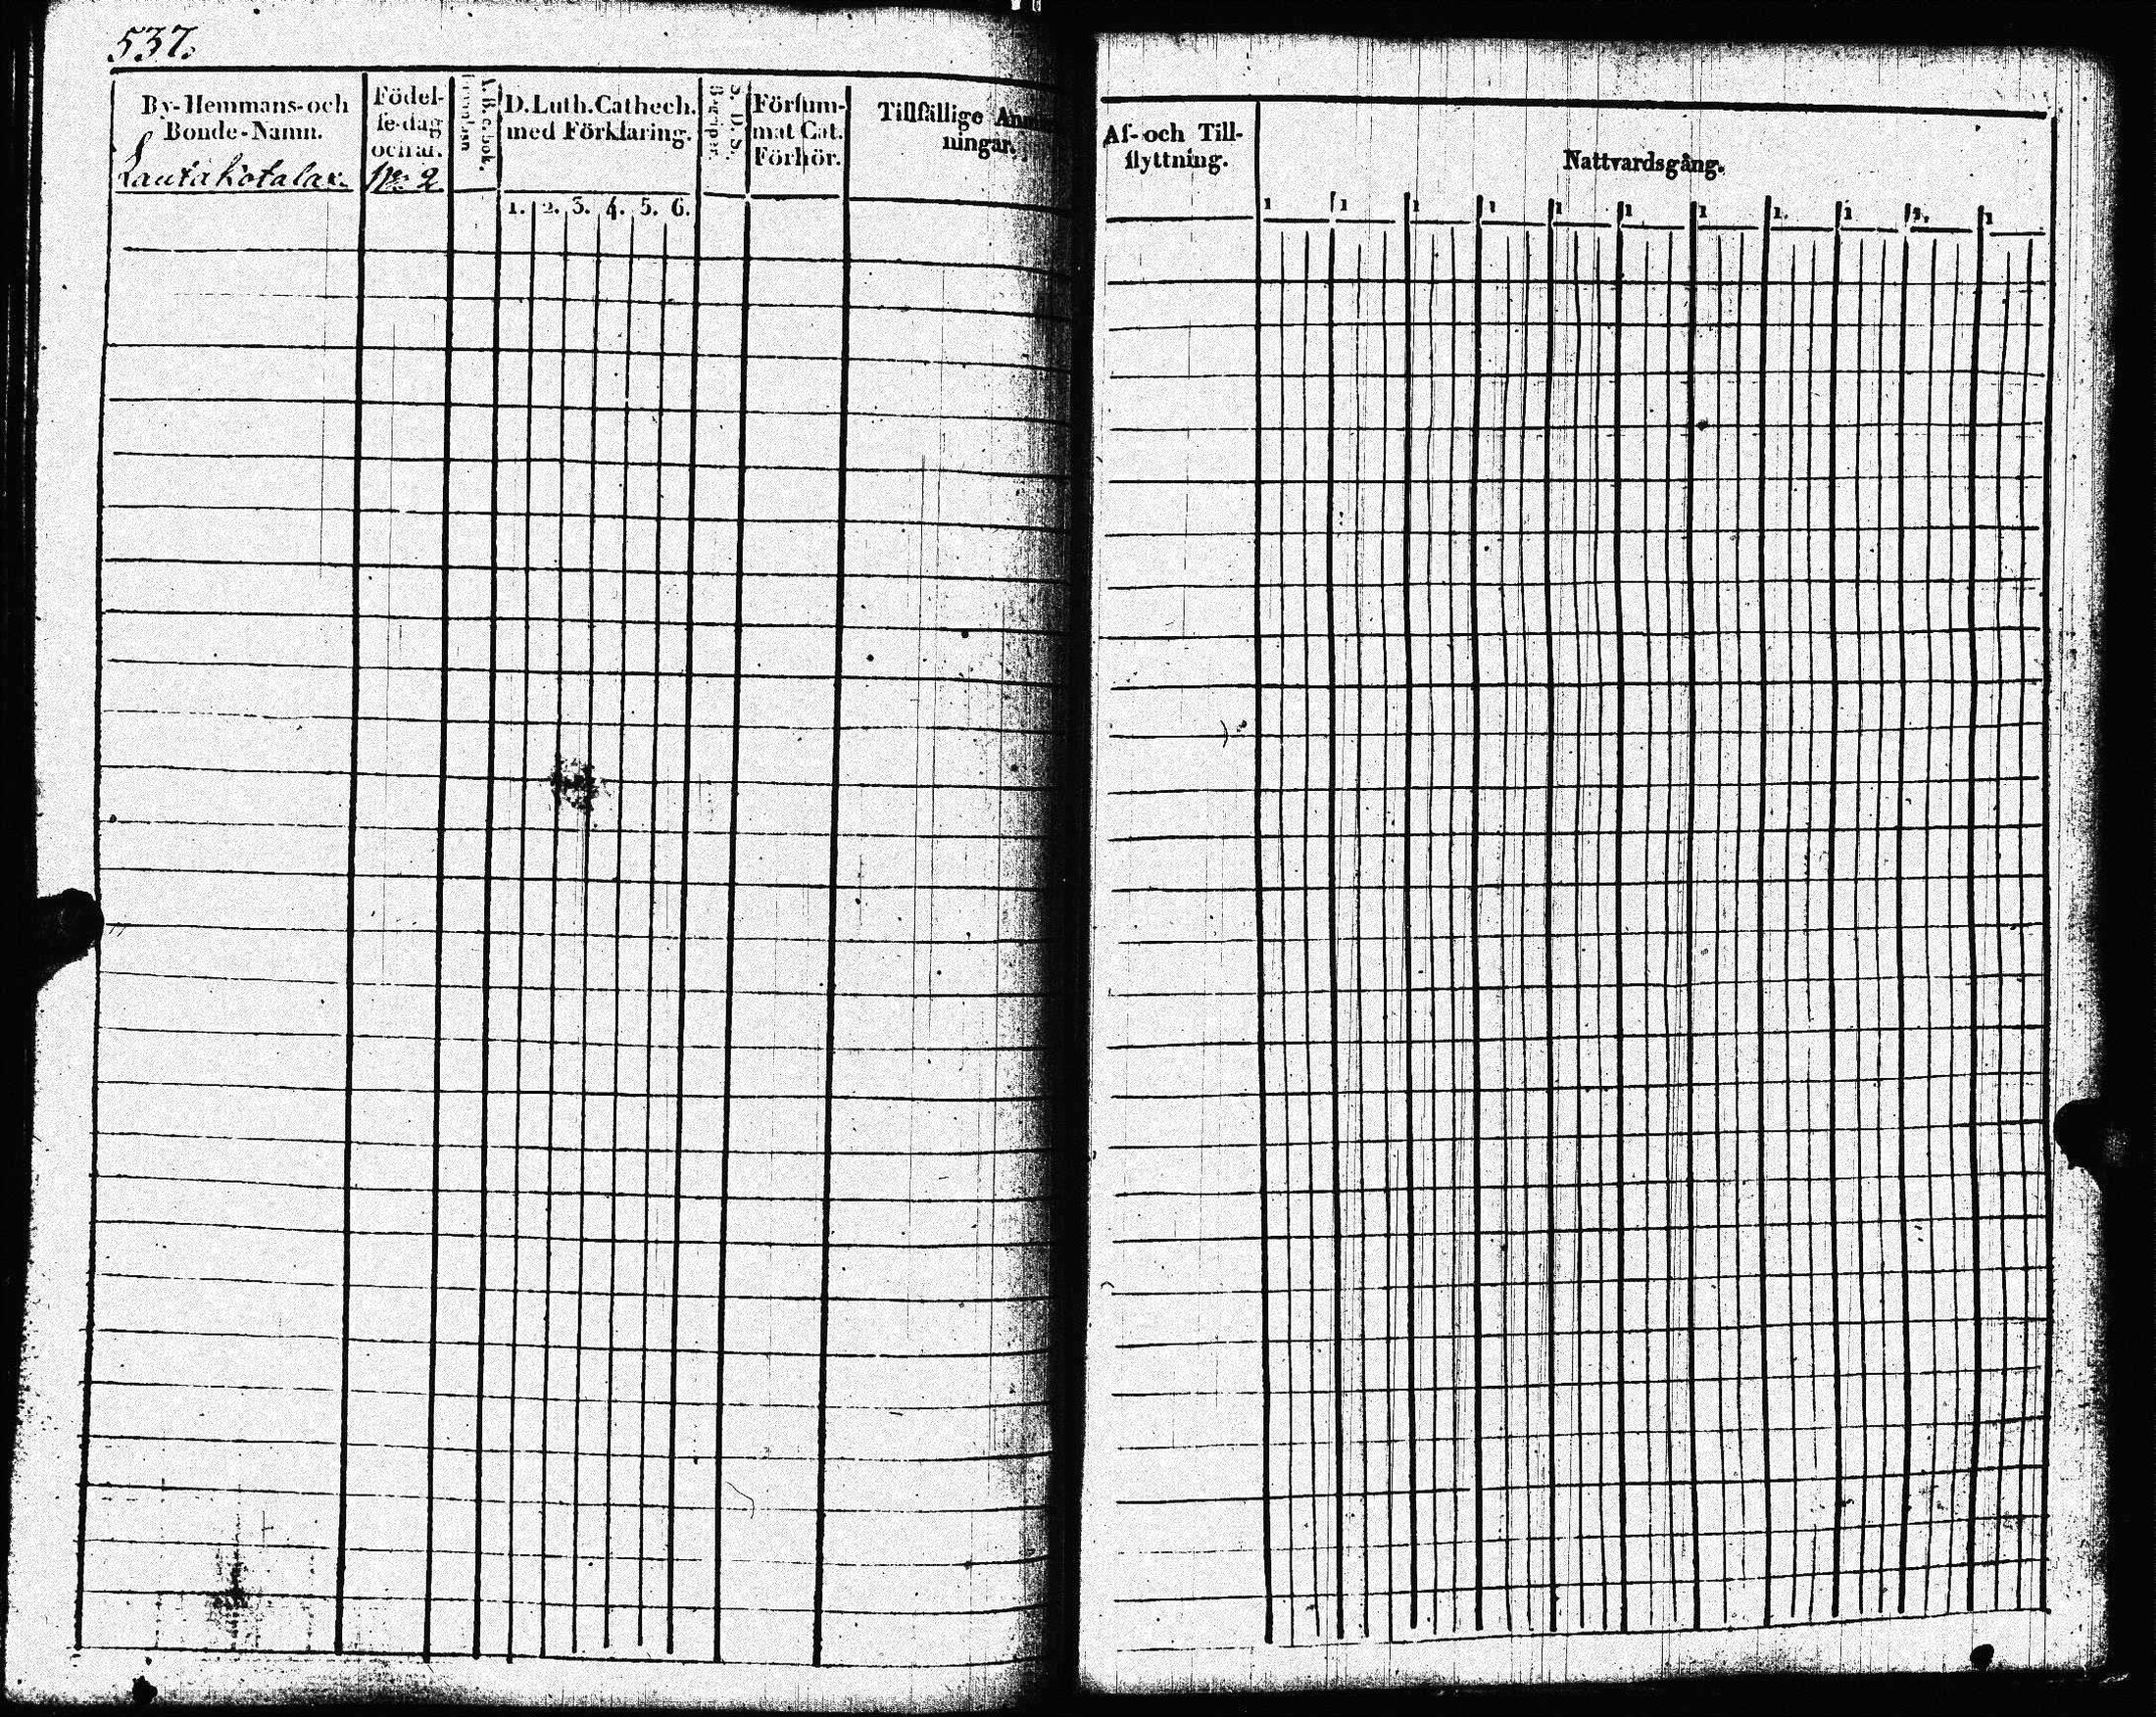 537.
By-Hemmans-och
Bonde-Namn.
Födel-
se-dag
och år.
Nº 2
D. Luth. Cathech.
med Förklaring.
1. 2. 3. 4. 5. 6.
Försum-
mat Cat.
Förhör.
Tillfällige
ningar.
Af-och Till-
flyttning.
Nattvardsgång.
1 1 1 1 1 1 1 1. 1 1. 1